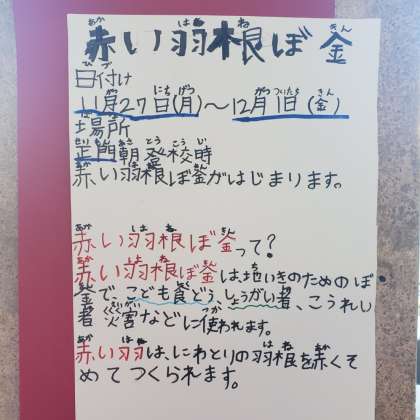 赤い羽根ぼ金
日付け
11月27日(月)〜12月1日(金)
場所
正門朝登校時
赤い羽根ぼ金がはじまります。
赤い羽根ぼ金って?
赤い羽根ぼ金は、地いきのためのぼ
金で、こども食どう、しょうがい者、こうれい
者災害などに使われます。
赤い羽は、にわとりの羽根を赤くそ
めてつくられます。